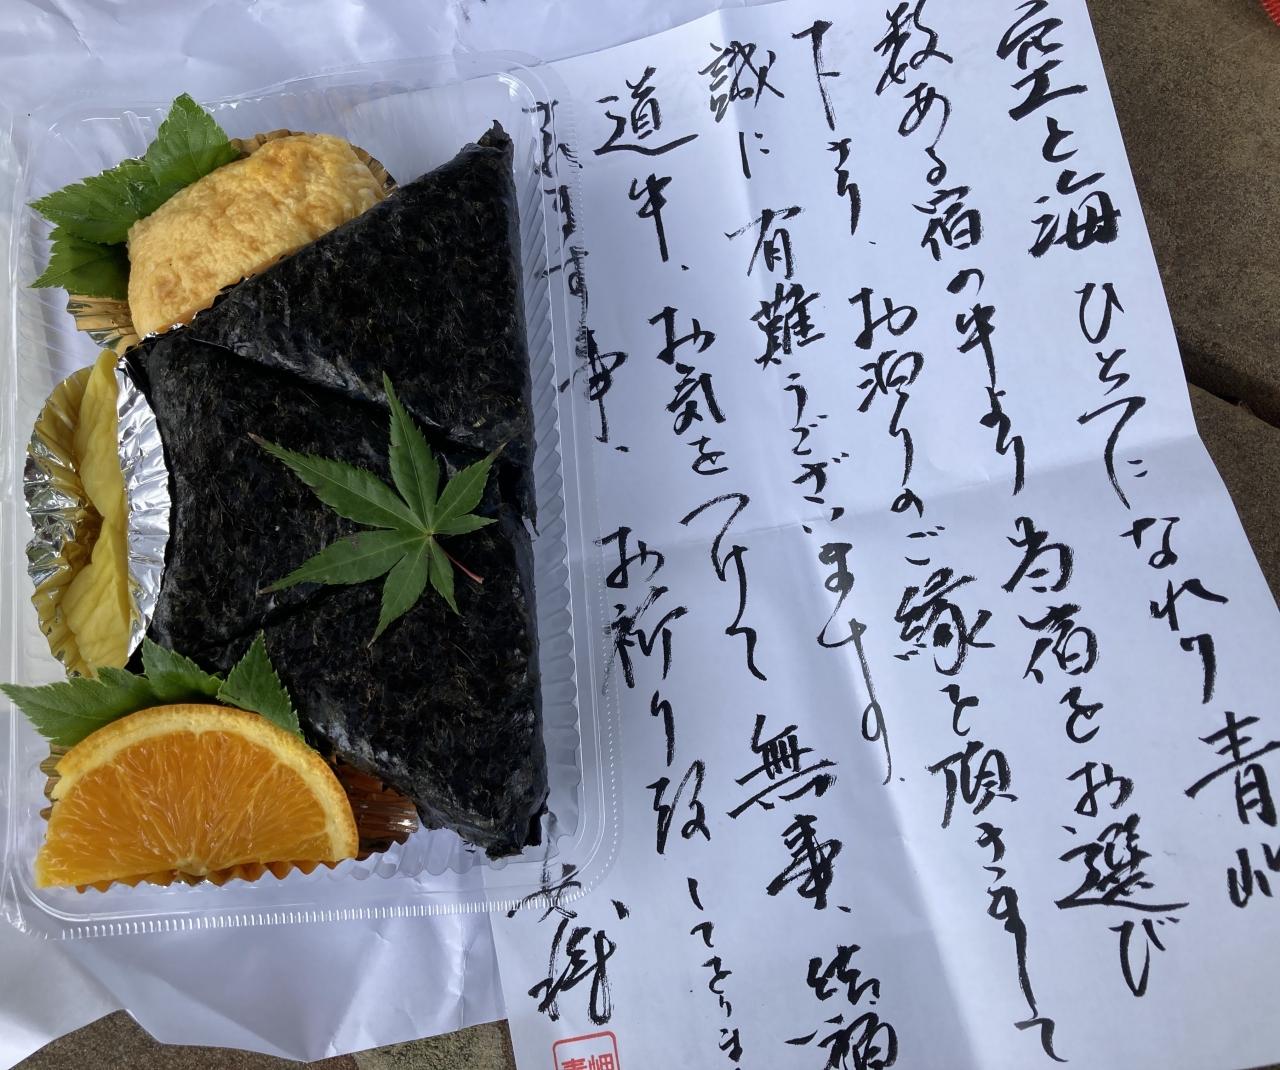 空と海ひとつになれり青岬
数ある宿の中より当宿をお選び
下さり、お泊りのご縁を頂きまして
誠に有難うございます。
道中、お気をつけて無事、結願
されます事、お祈り致しておりま
女将
青岬